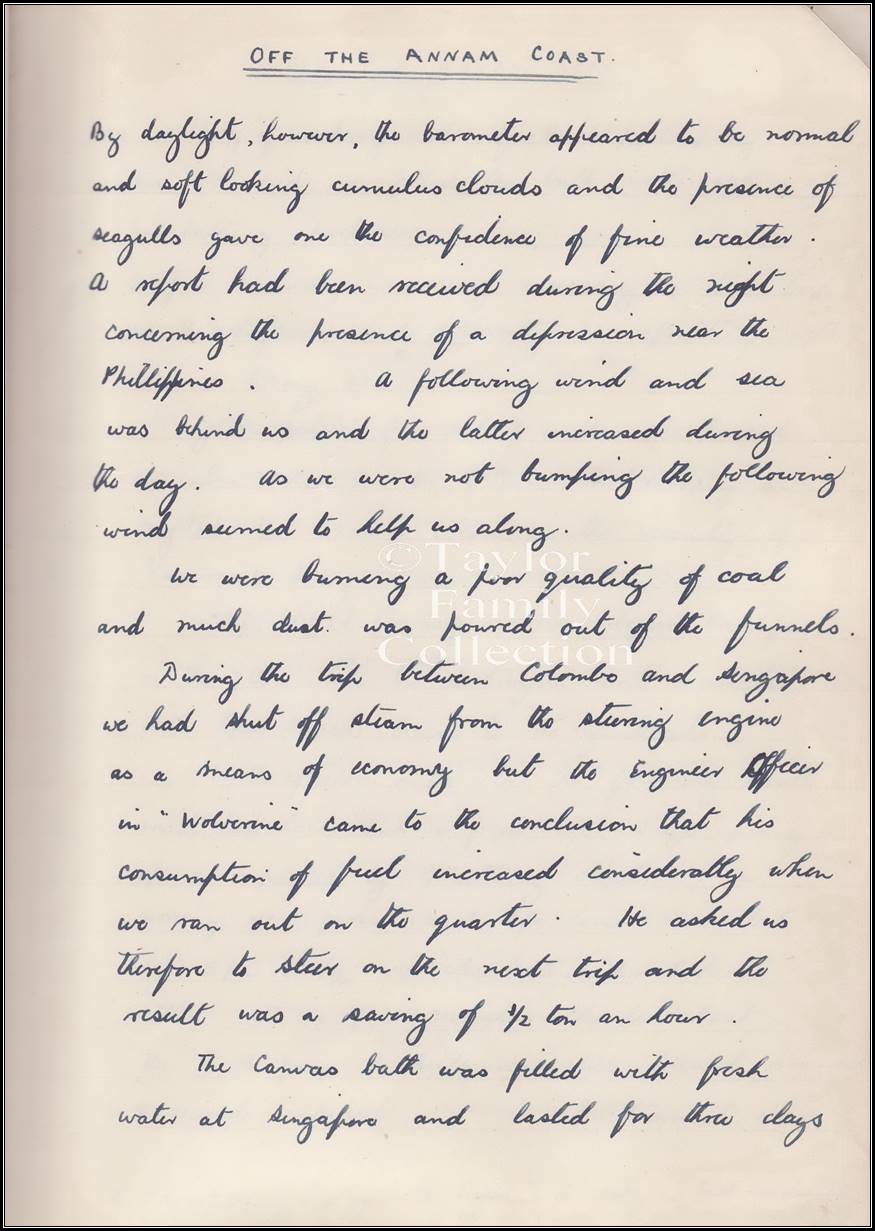 OFF THE ANNAM COAST.
By daylight, however, the barometer appeared to be normal
and soft looking cumulus clouds and the presence of
seagulls gave one the confidence of fine weather.
A report had been received during the night
concerning the presence of a depression near the
Phillippines. A following wind and sea
was behind us and the latter increased during
the day. As we were not bumping the following
wind seemed to help us along.
We were burning a poor quality of coal
and much dust was poured out of the funnels.
During the trip between Colombo and Singapore
we had shut off steam from the steering engine
as a means of economy but the Engineer Officer
in "Wolverine" came to the conclusion that his
consumption of fuel increased considerably when
we ran out on the quarter. He asked us
therefore to steer on the next trip and the
result was a saving of 1/2 ton an hour.
The Canvas bath was filled with fresh
water at Singapore and lasted for three days
©Taylor
Family
Collection